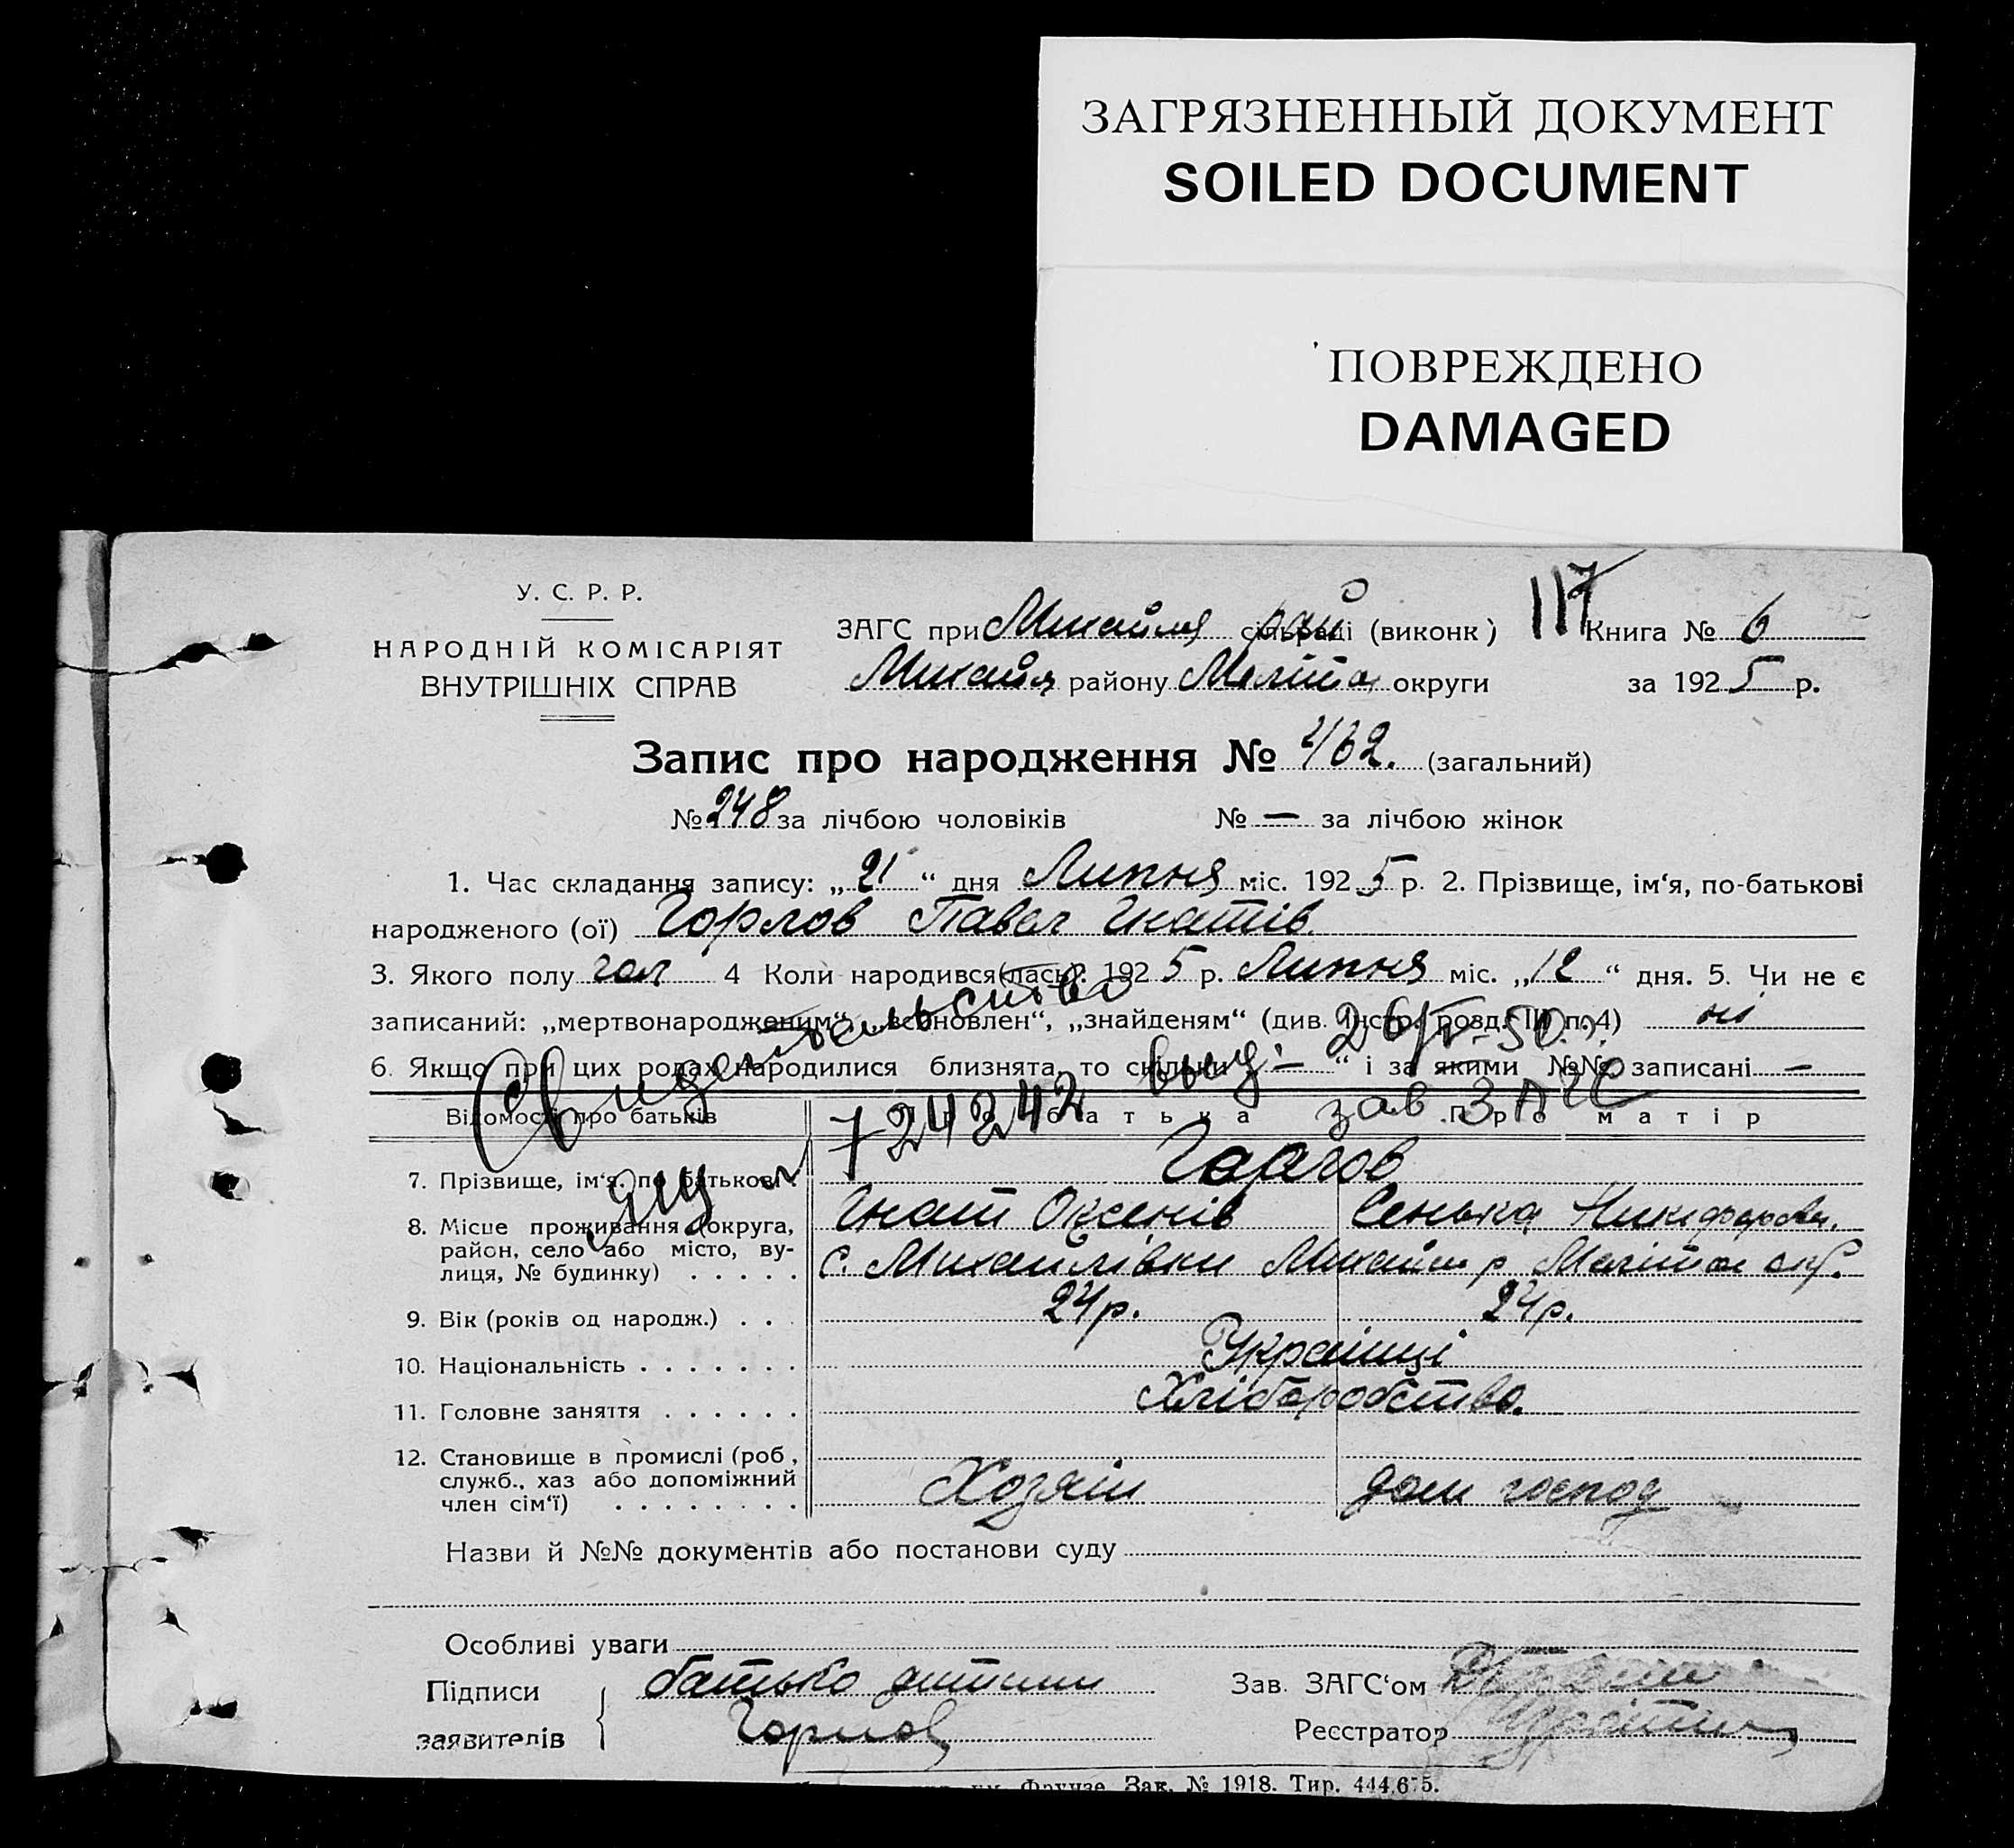 ЗАГРЯЗНЕННЫЙ ДОКУМЕНТ
SOILED DOCUMENT
ПОВРЕЖДЕНО
DAMAGED
У. С. Р. Р.
НАРОДНІЙ КОМІСАРІЯТ
ВНУТРІШНІХ СПРАВ
117
ЗАГС при Михайля рай сільраді (виконк) Книга № 6
Михайл району Меліто округи за 1925 р.
Запис про народження № 462. (загальний)
№ 248 за лічбою чоловіків № — за лічбою жінок
1. Час складання запису: „21“ дня Липня міс. 1925 р. 2. Прізвище, ім‘я, по-батькові
народженого (ої) Горлов Павел Гнатів
3. Якого полу чол 4 Коли народився(лась): 1925 р. Липня міс. „12“ дня. 5. Чи не є
записаний: „мертвонародженим“, „всиновлен“, „знайденям“ (див. Інстр. розд. III п. 4) ні
6. Якщо при цих родах народилися близнята, то скільки „—“ і за якими №№ записані —
Свидетельство
выд. 26/V-50 г.
724242 зав ЗАГС
Відомості про батьків Про батька Про матір
7. Прізвище, ім‘я, по батькові. Горлов
Гнат Оксенів Сенька Никифоров.
8. Місце проживання (округа,
район, село або місто, ву-
лиця, № будинку) . . . . . с. Михайлівки Михайл р Меліто окр.
9. Вік (років од народж.) . . . 24 р. 24 р.
10. Національність . . . . . . . Українці
11. Головне заняття . . . . . . Хліборобство.
12. Становище в промислі (роб,
служб., хаз або допоміжний
член сім‘ї) . . . . . . . . Хозяїн дом господ
Назви й №№ документів або постанови суду
Особливі уваги
Підписи батько дитини Зав. ЗАГС‘ом
заявителів Горлов Реєстратор
им. Фрунзе. Зак. № 1918. Тир. 444.675.